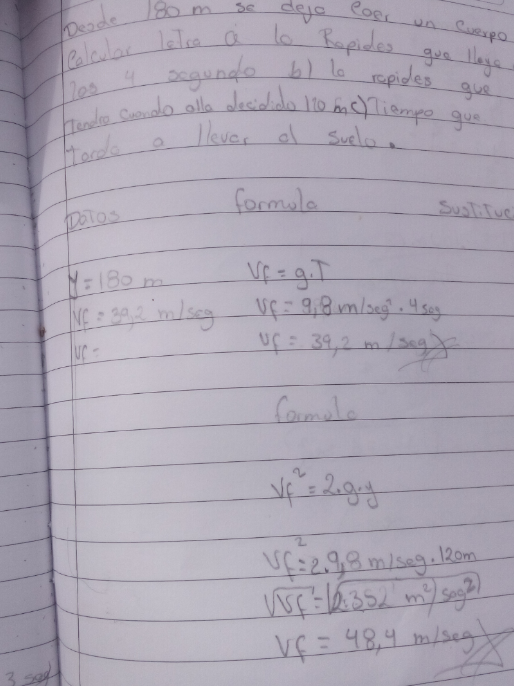 Desde 180 m se deja Caer un Cuerpo
Calcular letra a lo Rapides que llega
los 4 segundo b) la rapides que
Tendra Cuando alla decidido 110 m c) Tiempo que
tarda a llever al suelo.
Datos formula Sustituc
y = 180 m Vf = g.T
Vf = 39,2 m/seg Vf = 9,8 m/seg² . 4 seg
Vf = Vf = 39,2 m/seg
formula
Vf² = 2.g.y
Vf² = 2.9,8 m/seg . 120m
√Vf² = √2.352 m²/seg²
Vf = 48,4 m/seg
3 seg